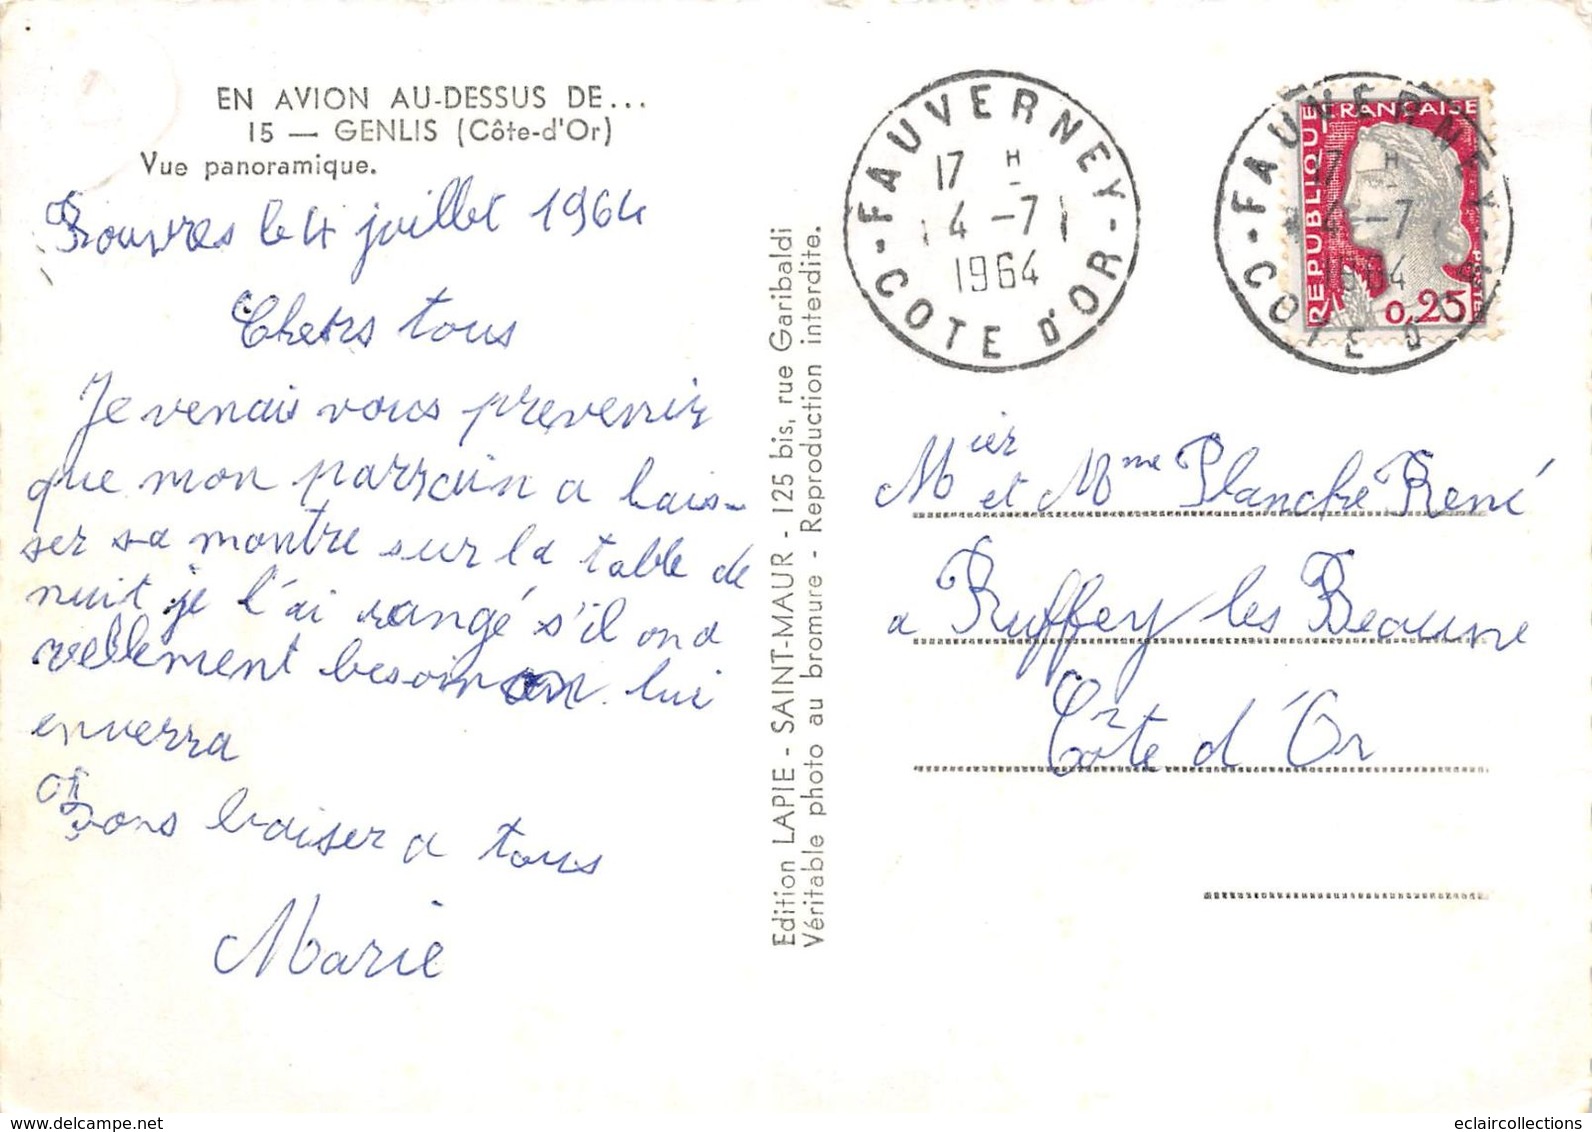 EN AVION AU-DESSUS DE...
15 — GENLIS (Côte-d'Or)
Vue panoramique.
Rouvres le 4 juillet 1964
Chers tous
Je venais vous prevenir
que mon parrain a lais-
ser sa montre sur la table de
nuit je l'ai rangé s'il ona
rellement besoin on lui
enverra
Bons baiser a tous
Marie
Edition LAPIE - SAINT-MAUR - 125 bis, rue Garibaldi
Véritable photo au bromure - Reproduction interdite.
FAUVERNEY
17 H
4 -7
1964
COTE D'OR
FAUVERNEY
17 H
4 -7
1964
COTE D'OR
REPUBLIQUE FRANÇAISE
POSTES
0,25
Mier et Mme Planche René
a Ruffey les Beaune
Côte d'Or
www.delcampe.net
eclaircollections